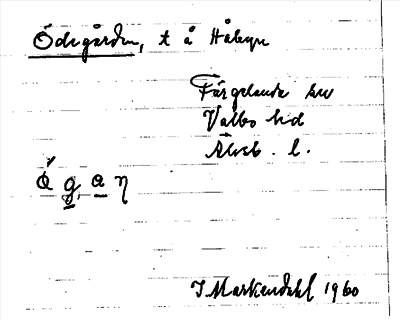 Ödegården, t å Håbyn
Färgelanda sn
Valbo hd
Älvsb. l.
Ö g, a ŋ
I Markendahl 1960